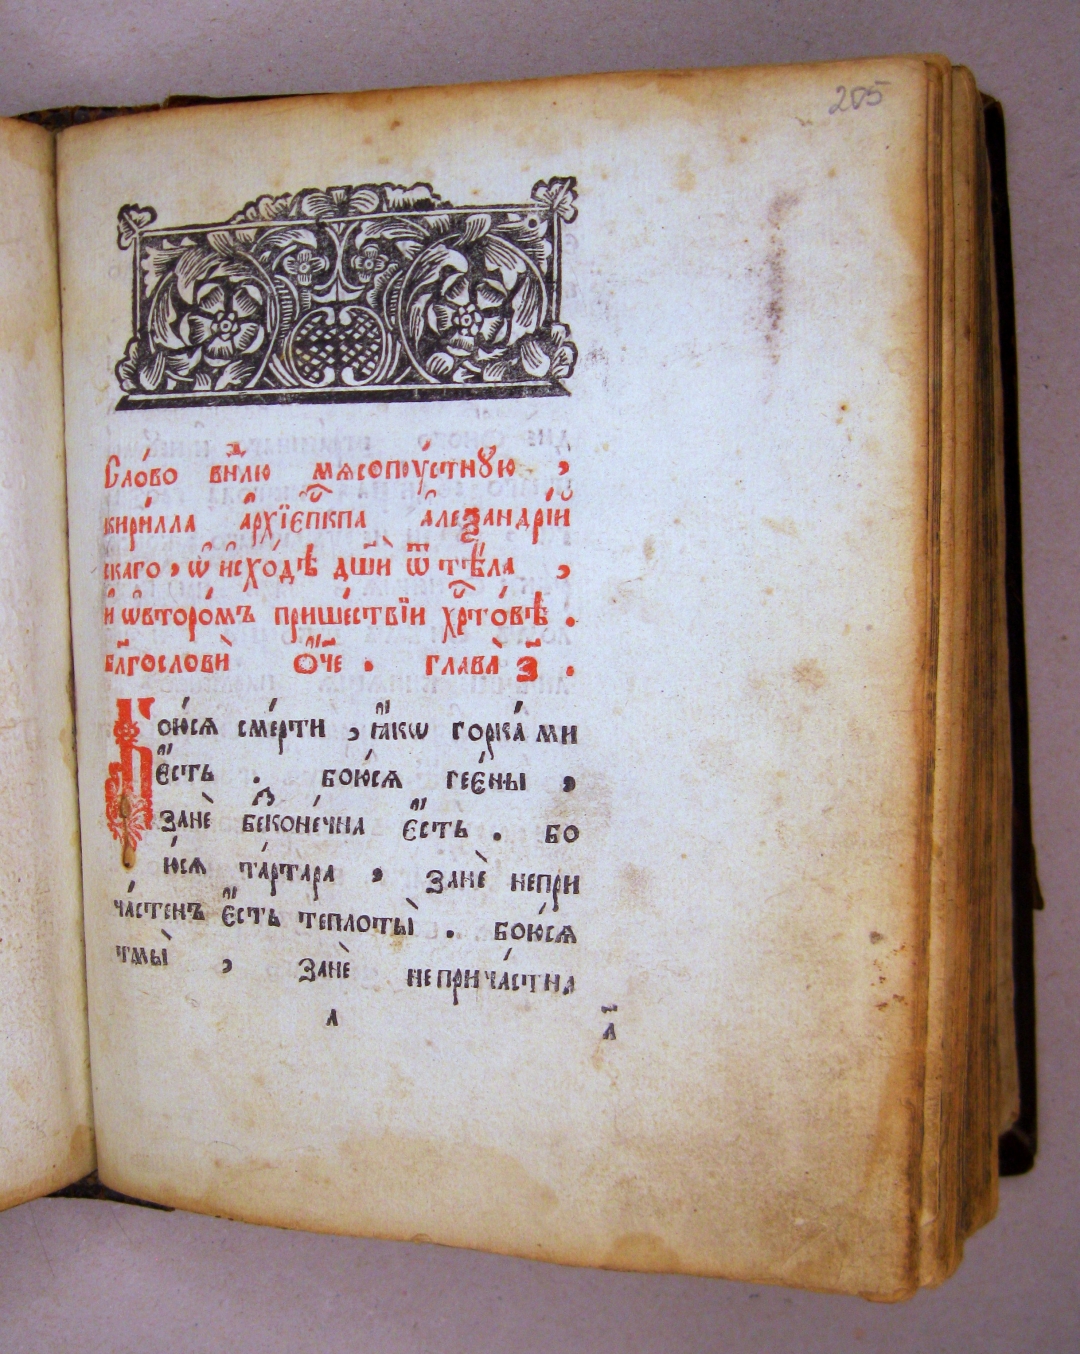 205
Сло́во внⷣлю мѧсопꙋ́стнꙋю ,
кири́лла а҆рхїєпⷭ҇кпа а҆леѯандрі́й
скаго , ѡ҆ и҆схо́дѣ дш҃ѝ ѿ тѣ́ла ,
и҆ ѡ҆второ́мъ прише́ствїи хрⷭ҇то́вѣ .
блгⷭ҇ословѝ ѻ҆́ч҃е . глава̀ з҃ .
Бою́сѧ сме́рти , ꙗ҆́кѡ горка́ ми
є҆́сть . бою́сѧ гее́ны ,
занѐ беⷥконе́чна є҆́сть . бо
ю́сѧ та́ртара , занѐ непри
ча́стенъ є҆́сть теплоты̀ . бою́сѧ
тмы̀ , занѐ неприча́стна
л л҃